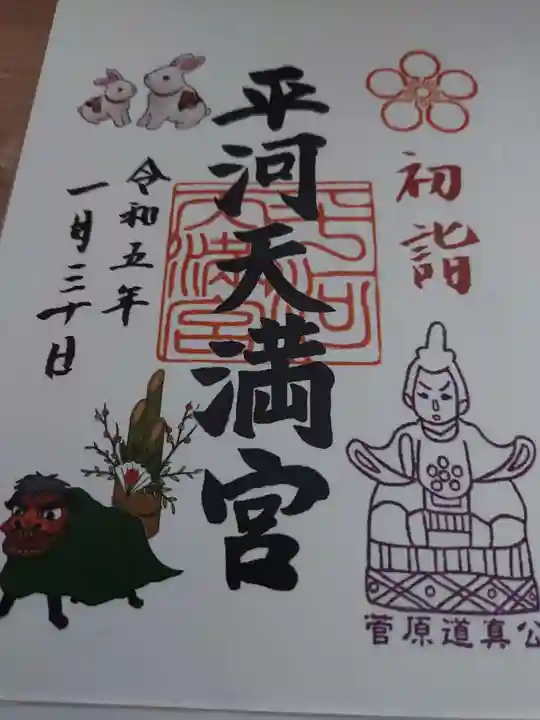 初詣
平河天満宮
平河天満宮
令和五年
一月三十日
菅原道真公